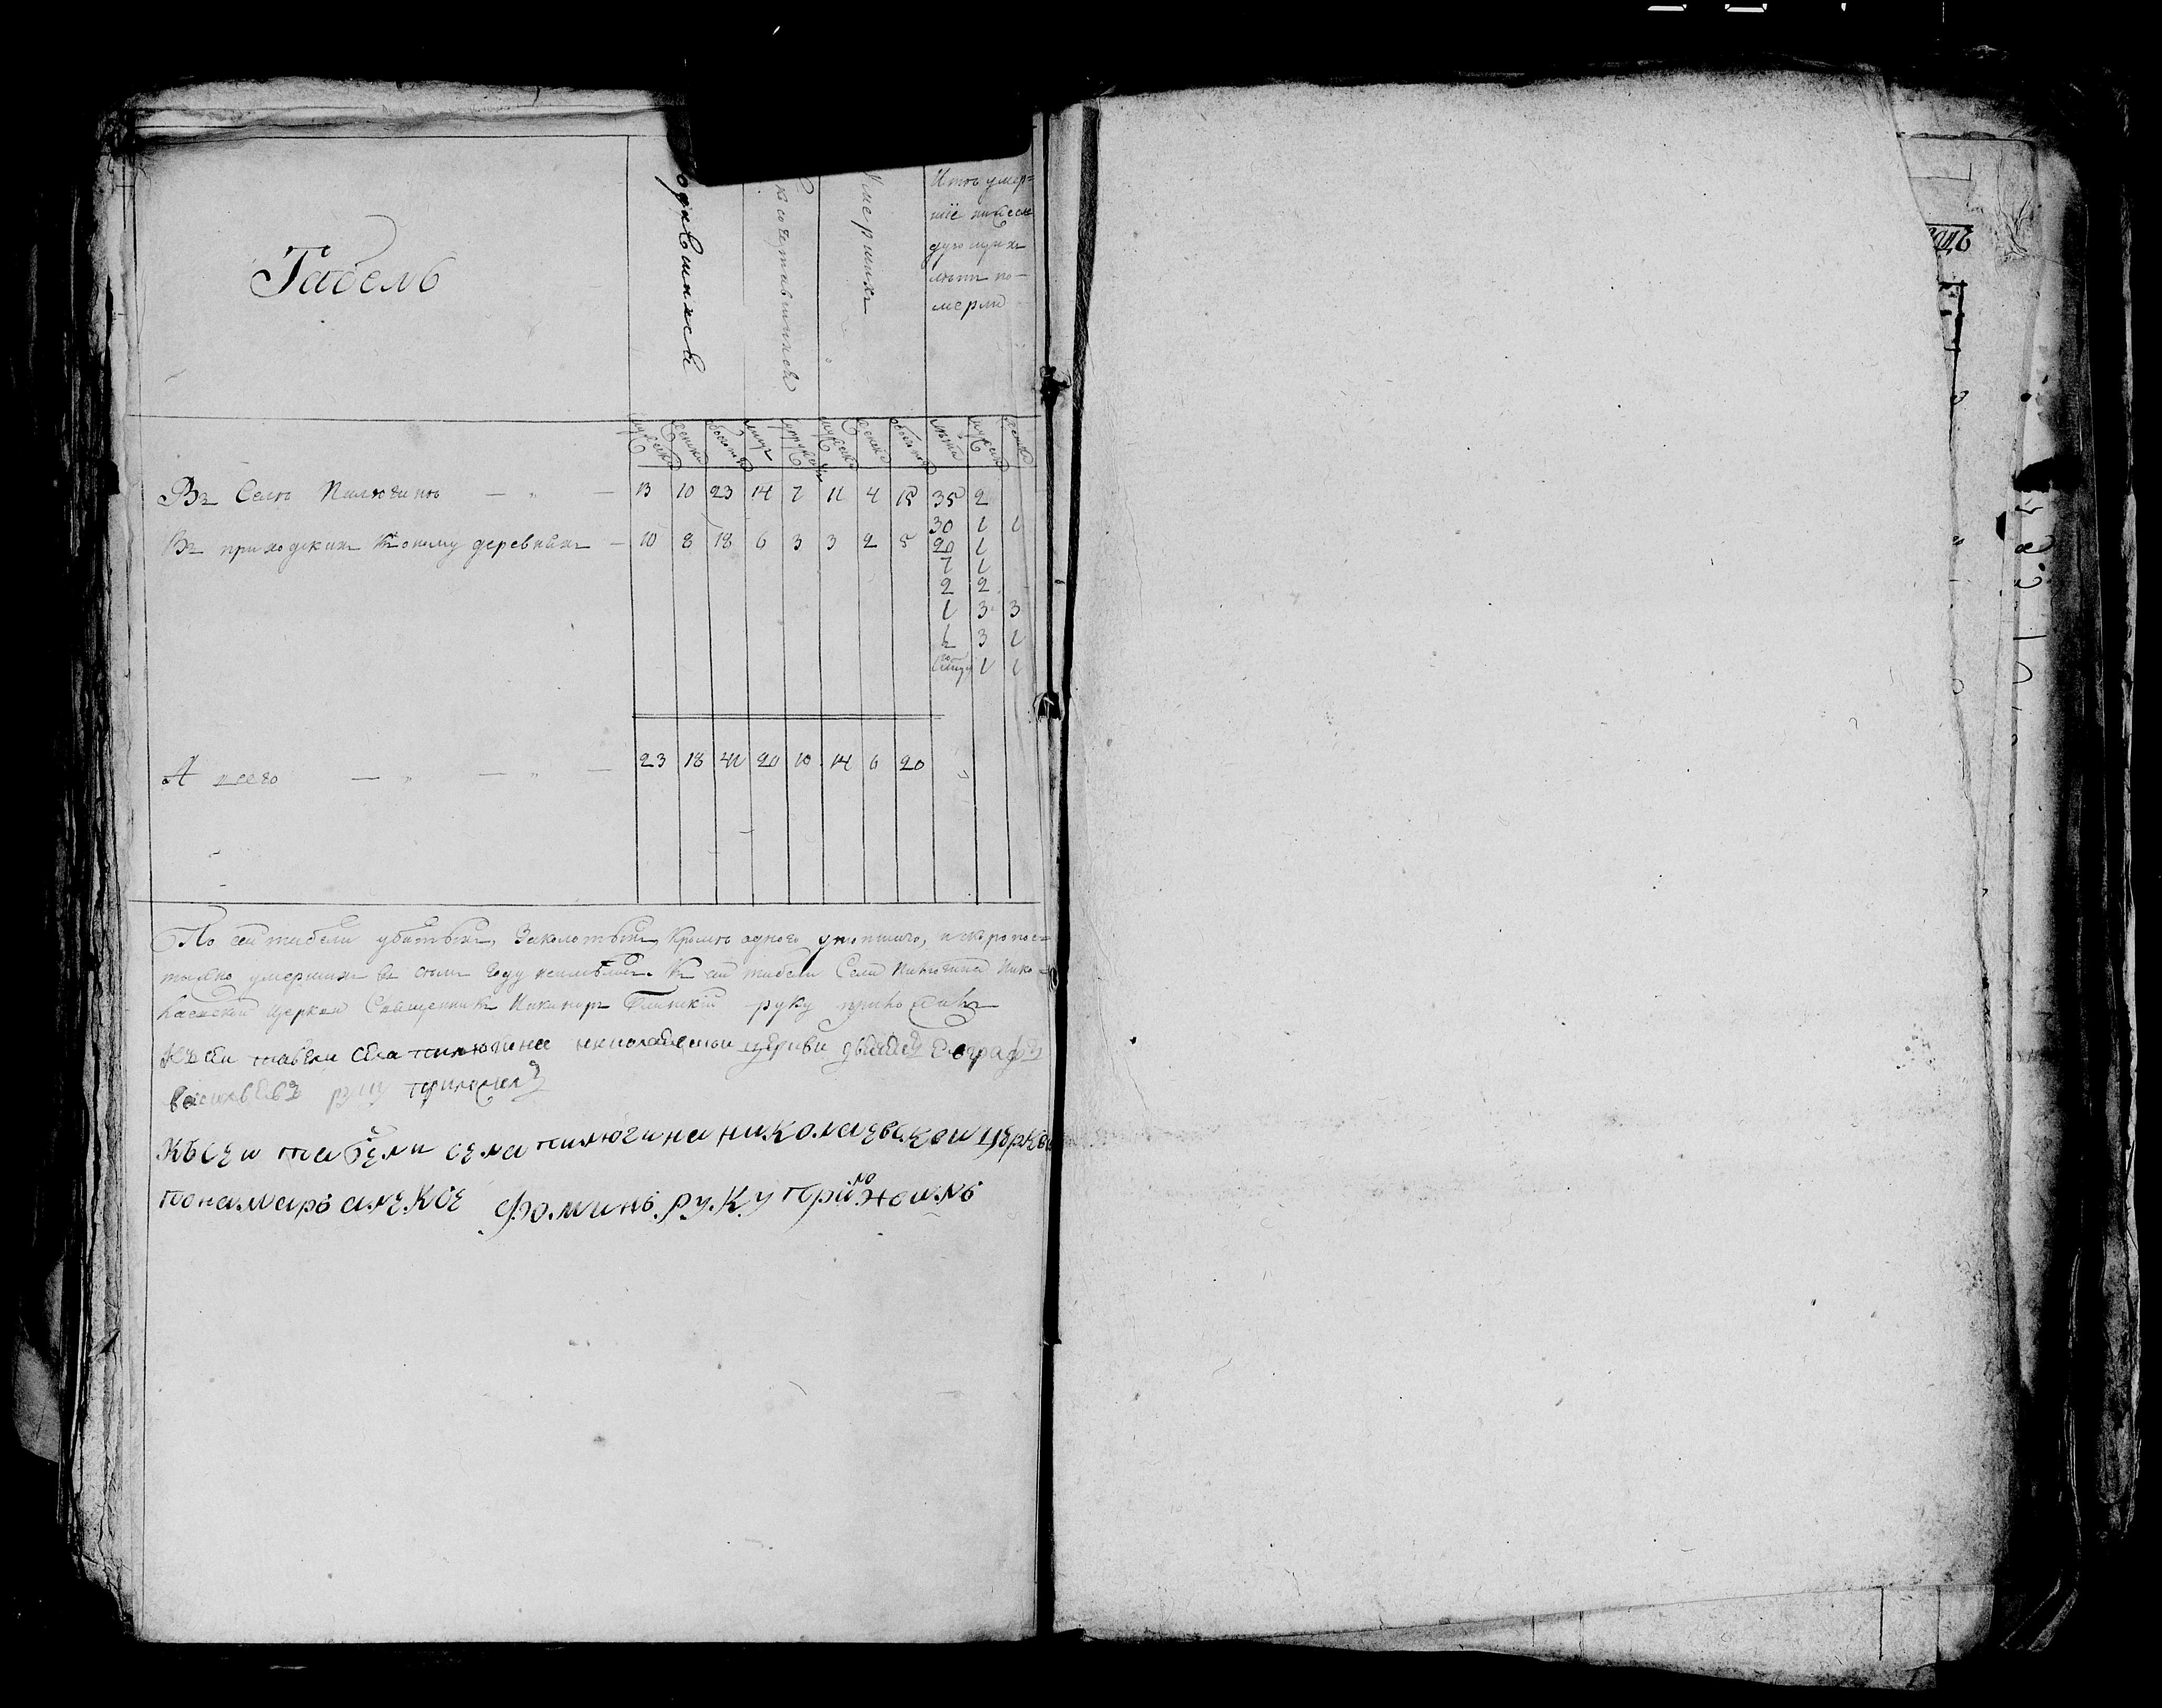 Табель
одившихся
косочетавшихся
Умерших
Итого умер-
шiе
дующих
лет по-
мерли
мужеска женска обоего лиц мужеска женска обоего мужеска женска
Въ Селѣ Пилюгинѣ — „ — 13 10 23 14 7 11 4 15 35 2
30 1 1
Въ приходских к оному деревнях — 10 8 18 6 3 3 2 5 20 1
7 1
2 2
1 3 3
½ 3 1
1 1
А всего — „ — „ — 23 18 41 20 10 14 6 20 „
По сей табели убитых, Заколотых, кромѣ одного утопшаго, и скоропос-
тыжно умерших в сем году не имѣлось. К сей табели Села Пилюгина Нико-
лаевской Церкви Священник Никанор руку приложил
Къ сей табели села пилюгина николаевской церкви Евграфъ
васильевъ руку приложилъ
Къ сеи табели села пилюгина николаевской церкви
понамарь алексе фоминъ руку приложилъ